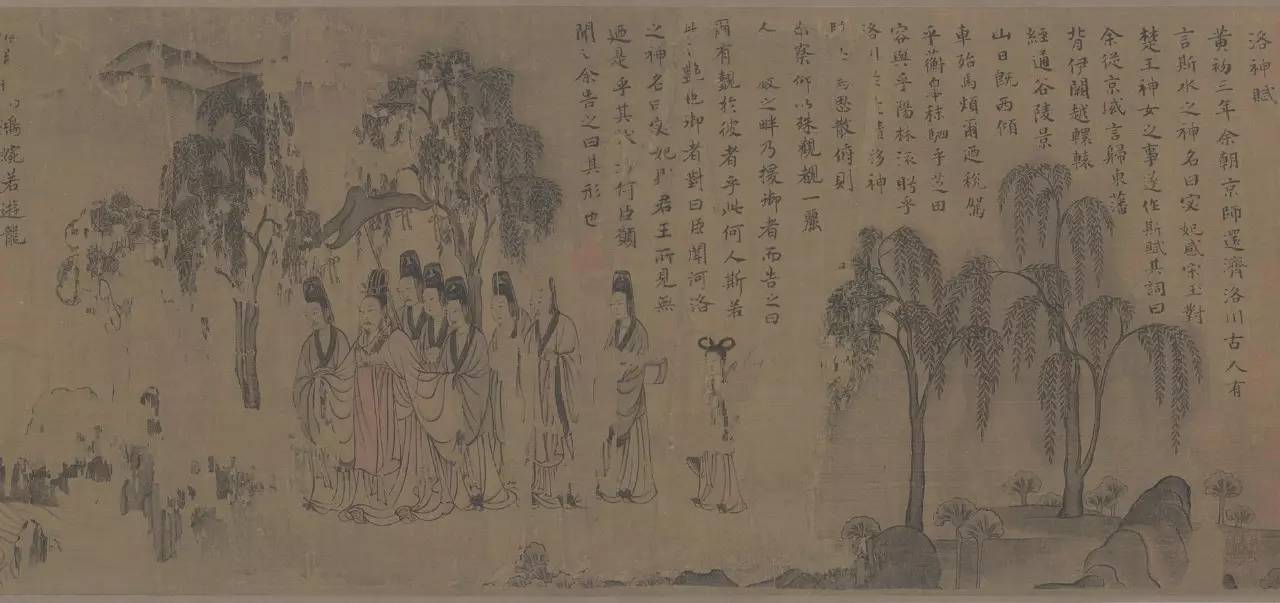 洛神賦
黄初三年余朝京師還濟洛川古人有
言斯水之神名曰宓妃感宋玉對
楚王神女之事遂作斯賦其詞曰
余從京域言歸東藩
背伊闕越轘轅
經通谷陵景
山日既西傾
車殆馬煩爾迺稅駕
乎蘅皋秣駟乎芝田
容與乎陽林流眄乎
洛川於精移神
思散俯則
未察仰以殊觀覩一麗
人之畔乃援御者而告之曰
爾有覿於彼者乎此何人斯若
此之艷也御者對曰臣聞河洛
之神名曰宓妃則君王所見無
迺是乎其狀何臣願
聞之余告之曰其形也
鴻婉若遊龍